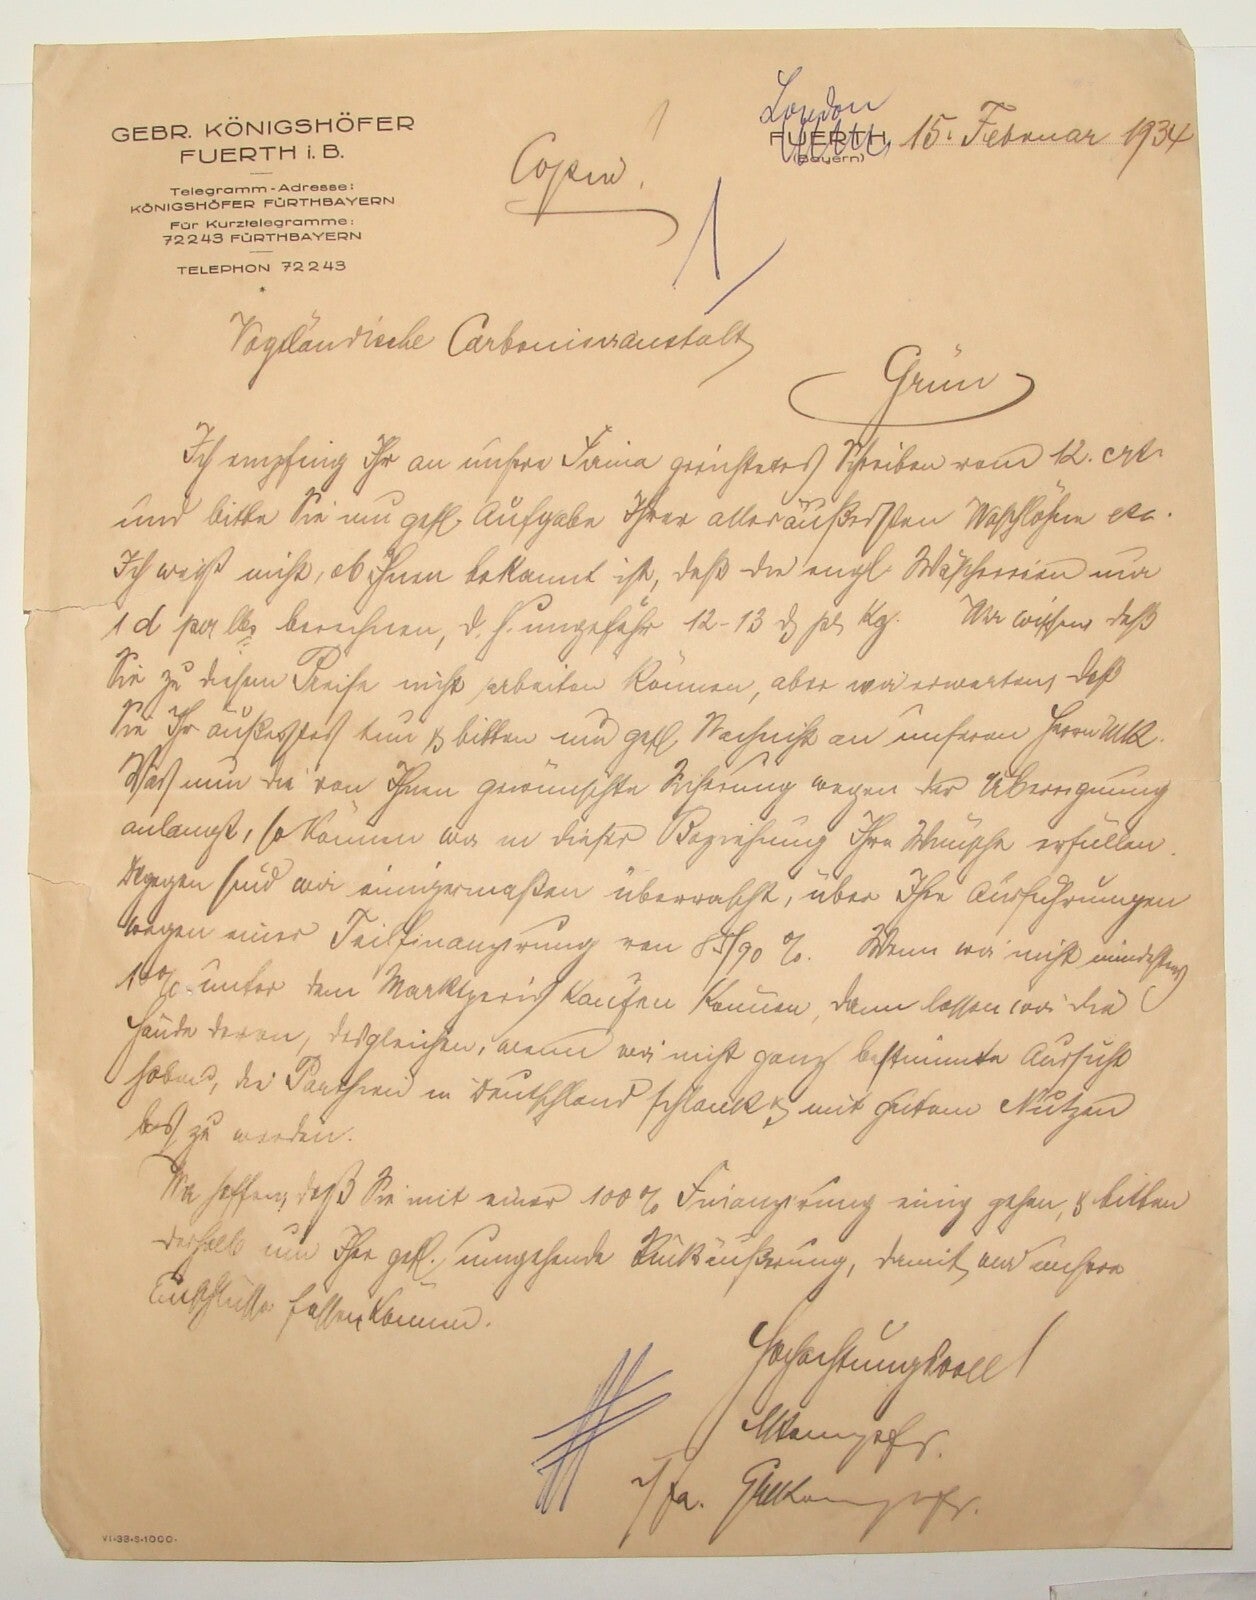 GEBR. KÖNIGSHÖFER
FUERTH i. B.
Telegramm-Adresse:
KÖNIGSHÖFER FÜRTHBAYERN
Für Kurztelegramme:
72243 FÜRTHBAYERN
TELEPHON 72243
London
FUERTH, 15. Februar 1934
(Bayern)
Copie.
Vogtländische Carbonisieranstalt
Grün
Ich empfing Ihr an unsere Firma gerichtetes Schreiben vom 12. crt.
und bitte Sie um gefl. Aufgabe Ihrer alleräußersten Waschlöhne etc.
Ich weiß nicht, ob Ihnen bekannt ist, daß die engl. Wäschereien nur
1 d per lbs berechnen, d. h. ungefähr 12-13 d per Kg. Wir wissen, daß
Sie zu diesem Preise nicht arbeiten können, aber wir erwarten, daß
Sie Ihr äußerstes tun & bitten um gefl. Nachricht an unseren Herrn MK.
Was nun die von Ihnen gewünschte Sicherung wegen der Übereignung
anlangt, so können wir in dieser Beziehung Ihre Wünsche erfüllen.
Dagegen sind wir einigermaßen überrascht, über Ihre Ausführungen
wegen einer Teilfinanzierung von 85/90 %. Wenn wir nicht mindestens
10% unter dem Marktpreis kaufen können, dann lassen wir die
Hände davon, desgleichen, wenn wir nicht ganz bestimmte Aussicht
haben, die Parthien in Deutschland schlank & mit gutem Nutzen
los zu werden.
Wir hoffen, daß Sie mit einer 100% Finanzierung einig gehen, & bitten
deshalb um Ihre gefl. umgehende Rückäußerung, damit wir unsere
Entschlüsse fassen können.
Hochachtungsvoll!
i/fa.
VI-33-S-1000-